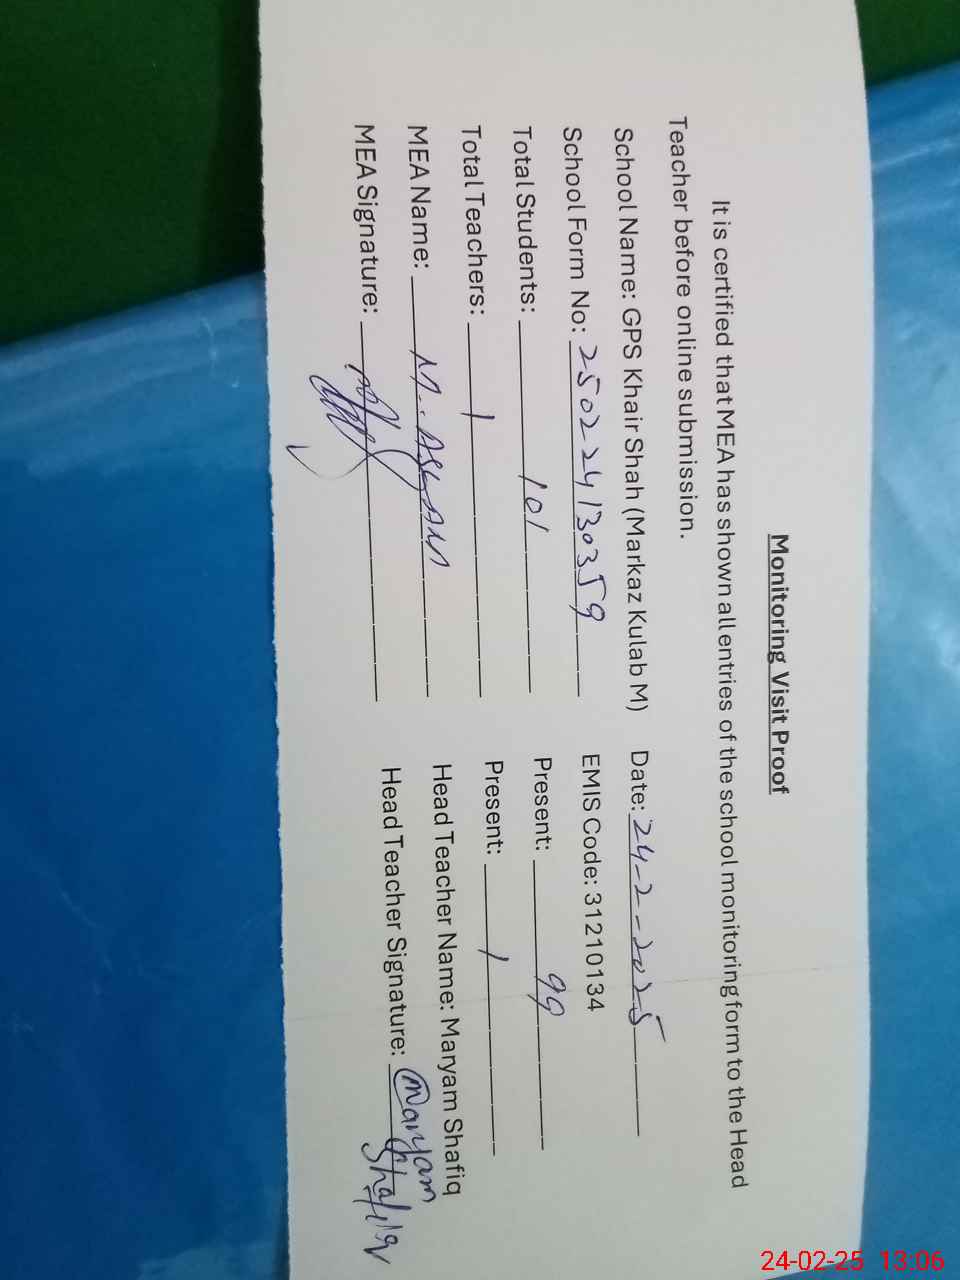 Monitoring Visit Proof
It is certified that MEA has shown all entries of the school monitoring form to the Head
Teacher before online submission.
School Name: GPS Khair Shah (Markaz Kulab M) Date: 24-2-2025
School Form No: 250224130359 EMIS Code: 31210134
Total Students: 101 Present: 99
Total Teachers: 1 Present: 1
MEA Name: M. Head Teacher Name: Maryam Shafiq
MEA Signature: Head Teacher Signature: Maryam
Shafiq
24-02-25 13:06